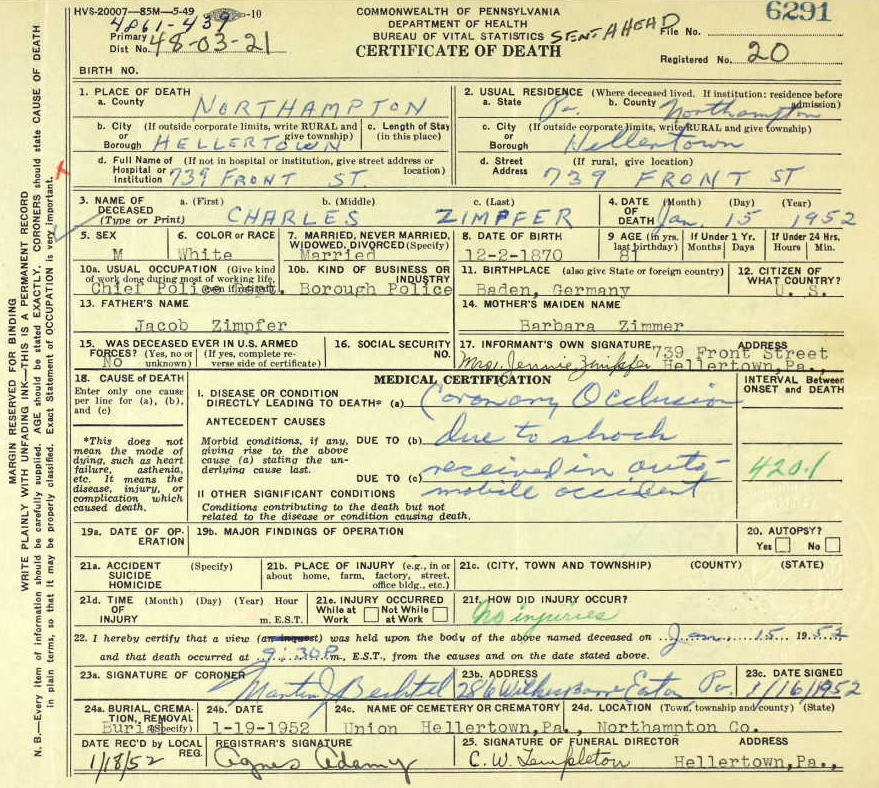 HVS-20007—85M—5-49 —10
4861-439
COMMONWEALTH OF PENNSYLVANIA
DEPARTMENT OF HEALTH
BUREAU OF VITAL STATISTICS
CERTIFICATE OF DEATH
SENT AHEAD
6291
File No.
Primary Dist No. 48-03-21
Registered No. 20
BIRTH NO.
1. PLACE OF DEATH
a. County NORTHAMPTON
b. City or Borough (If outside corporate limits, write RURAL and give township) HELLERTOWN
c. Length of Stay (in this place)
d. Full Name of Hospital or Institution (If not in hospital or institution, give street address or location) 739 FRONT ST.
2. USUAL RESIDENCE (Where deceased lived. If institution: residence before admission)
a. State Pa. b. County Northampton
c. City or Borough (If outside corporate limits, write RURAL and give township) Hellertown
d. Street Address (If rural, give location) 739 FRONT ST
3. NAME OF DECEASED (Type or Print) a. (First) b. (Middle) c. (Last)
CHARLES ZIMPFER
4. DATE OF DEATH (Month) (Day) (Year)
Jan. 15 1952
5. SEX M
6. COLOR OR RACE White
7. MARRIED, NEVER MARRIED, WIDOWED, DIVORCED (Specify) Married
8. DATE OF BIRTH 12-2-1870
9 AGE (in yrs. last birthday) 81
If Under 1 Yr. Months Days
If Under 24 Hrs. Hours Min.
10a. USUAL OCCUPATION (Give kind of work done during most of working life, even if retired)
Chief Police
10b. KIND OF BUSINESS OR INDUSTRY Borough Police
11. BIRTHPLACE (also give State or foreign country) Baden, Germany
12. CITIZEN OF WHAT COUNTRY? U. S.
13. FATHER'S NAME
Jacob Zimpfer
14. MOTHER'S MAIDEN NAME
Barbara Zimmer
15. WAS DECEASED EVER IN U.S. ARMED FORCES? (Yes, no or unknown) (If yes, complete reverse side of certificate) No
16. SOCIAL SECURITY NO.
17. INFORMANT'S OWN SIGNATURE ADDRESS
Mrs. Jennie Zimpfer 739 Front Street Hellertown,Pa.,
18. CAUSE OF DEATH
Enter only one cause per line for (a), (b), and (c)
*This does not mean the mode of dying, such as heart failure, asthenia, etc. It means the disease, injury, or complication which caused death.
MEDICAL CERTIFICATION
I. DISEASE OR CONDITION DIRECTLY LEADING TO DEATH* (a) Coronary Occlusion
ANTECEDENT CAUSES
Morbid conditions, if any, giving rise to the above cause (a) stating the underlying cause last.
DUE TO (b) due to shock
DUE TO (c) received in auto-
mobile accident
II OTHER SIGNIFICANT CONDITIONS
Conditions contributing to the death but not related to the disease or condition causing death.
INTERVAL Between ONSET and DEATH
420.1
19a. DATE OF OPERATION
19b. MAJOR FINDINGS OF OPERATION
20. AUTOPSY?
Yes No
21a. ACCIDENT SUICIDE HOMICIDE (Specify)
21b. PLACE OF INJURY (e.g., in or about home, farm, factory, street, office bldg., etc.)
21c. (CITY, TOWN AND TOWNSHIP) (COUNTY) (STATE)
21d. TIME OF INJURY (Month) (Day) (Year) Hour m. E.S.T.
21e. INJURY OCCURRED While at Work Not While at Work
21f. HOW DID INJURY OCCUR?
No injuries
22. I hereby certify that a view (an inquest) was held upon the body of the above named deceased on Jan. 15 1952
and that death occurred at 9:30P m., E.S.T., from the causes and on the date stated above.
23a. SIGNATURE OF CORONER Martin J Bechtel
23b. ADDRESS Easton Pa.
23c. DATE SIGNED 1/16/1952
24a. BURIAL, CREMATION, REMOVAL (Specify) Burial
24b. DATE 1-19-1952
24c. NAME OF CEMETERY OR CREMATORY Union Hellertown,Pa.,
24d. LOCATION (Town, township and county) (State) Northampton Co.
DATE REC'D BY LOCAL REG. 1/18/52
REGISTRAR'S SIGNATURE Agnes Adamy
25. SIGNATURE OF FUNERAL DIRECTOR ADDRESS
C.W. Templeton Hellertown,Pa.,
MARGIN RESERVED FOR BINDING
WRITE PLAINLY WITH UNFADING INK—THIS IS A PERMANENT RECORD
N. B.—Every item of information should be carefully supplied. AGE should be stated EXACTLY. CORONERS should state CAUSE OF DEATH
in plain terms, so that it may be properly classified. Exact Statement of OCCUPATION is very important.